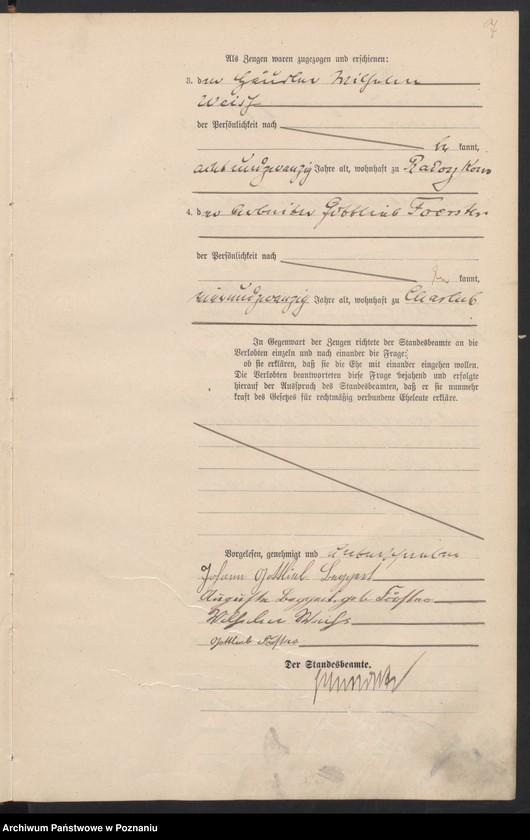 7
Als Zeugen waren zugezogen und erschienen:
3. der Häusler Wilhelm
Weiß
der Persönlichkeit nach
be kannt,
achtundzwanzig Jahre alt, wohnhaft zu
4. der Arbeiter Gottlieb Foerster
der Persönlichkeit nach
kannt,
Jahre alt, wohnhaft zu Charlub
In Gegenwart der Zeugen richtete der Standesbeamte an die
Verlobten einzeln und nach einander die Frage:
ob sie erklären, daß sie die Ehe mit einander eingehen wollen.
Die Verlobten beantworteten diese Frage bejahend und erfolgte
hierauf der Ausspruch des Standesbeamten, daß er sie nunmehr
kraft des Gesetzes für rechtmäßig verbundene Eheleute erkläre.
Vorgelesen, genehmigt und unterschrieben
Johann Gottlieb
Auguste geb.
Wilhelm
Gottlieb
Der Standesbeamte.
Archiwum Państwowe w Poznaniu